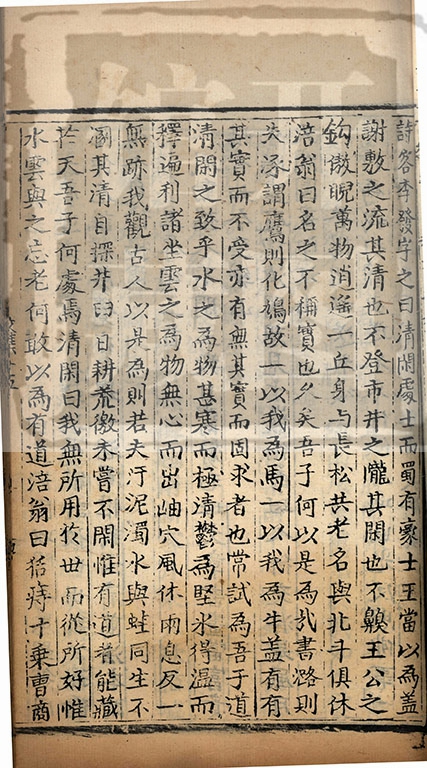 詩客李發字之曰清閑處士而蜀有豪士王當以為蓋
謝敷之流其清也不登市井之隴其閑也不饗王公之
鈎傲睨萬物逍遙一丘身与長松共老名與北斗俱休
涪翁曰名之不稱實也久矣吾子何以是為哉書潞則
失涿謂鷹則化鳩故一以我為馬一以我為牛盖有有
其實而不受亦有無其實而固求者也常試為吾子道
清閑之致乎水之為物甚寒而極清鬱為堅氷得溫而
釋遍利諸坐雲之為物無心而出岫穴風休雨息反一
無跡我觀古人以是為則若夫汙泥濁水與蛙同生不
溷其清自探井臼日耕荒徼未嘗不閑惟有道者能藏
於天吾子何處焉清閑曰我無所用於世而從所好惟
水雲與之忘老何敢以為有道涪翁曰舐痔十乘曹商